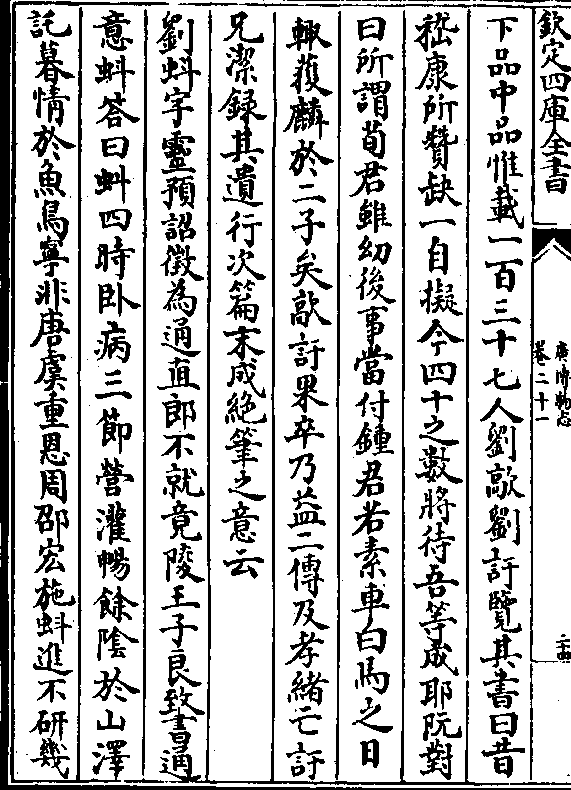 欽定四庫全書
廣博物志
卷二十一
二十四
下品中品惟載一百三十七人劉歊劉訏覽其書曰昔
嵇康所贊缺一自擬今四十之數將待吾等成耶阮對
曰所謂荀君雖幼後事當付鍾君若素車白馬之日
輙獲麟於二子矣歊訏果卒乃益二傳及孝緒亡訏
兄潔錄其遺行次篇末成絶筆之意云
劉蚪字靈預詔徵為通直郎不就竟陵王子良致書通
意蚪答曰蚪四時卧病三節營灌暢餘隂於山澤
託暮情於魚鳥寧非唐虞重恩周邵宏施蚪進不研幾